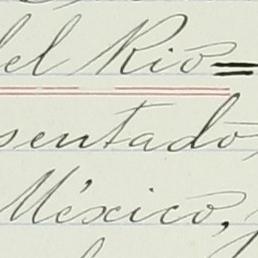 del Rio=
sentado,
México,